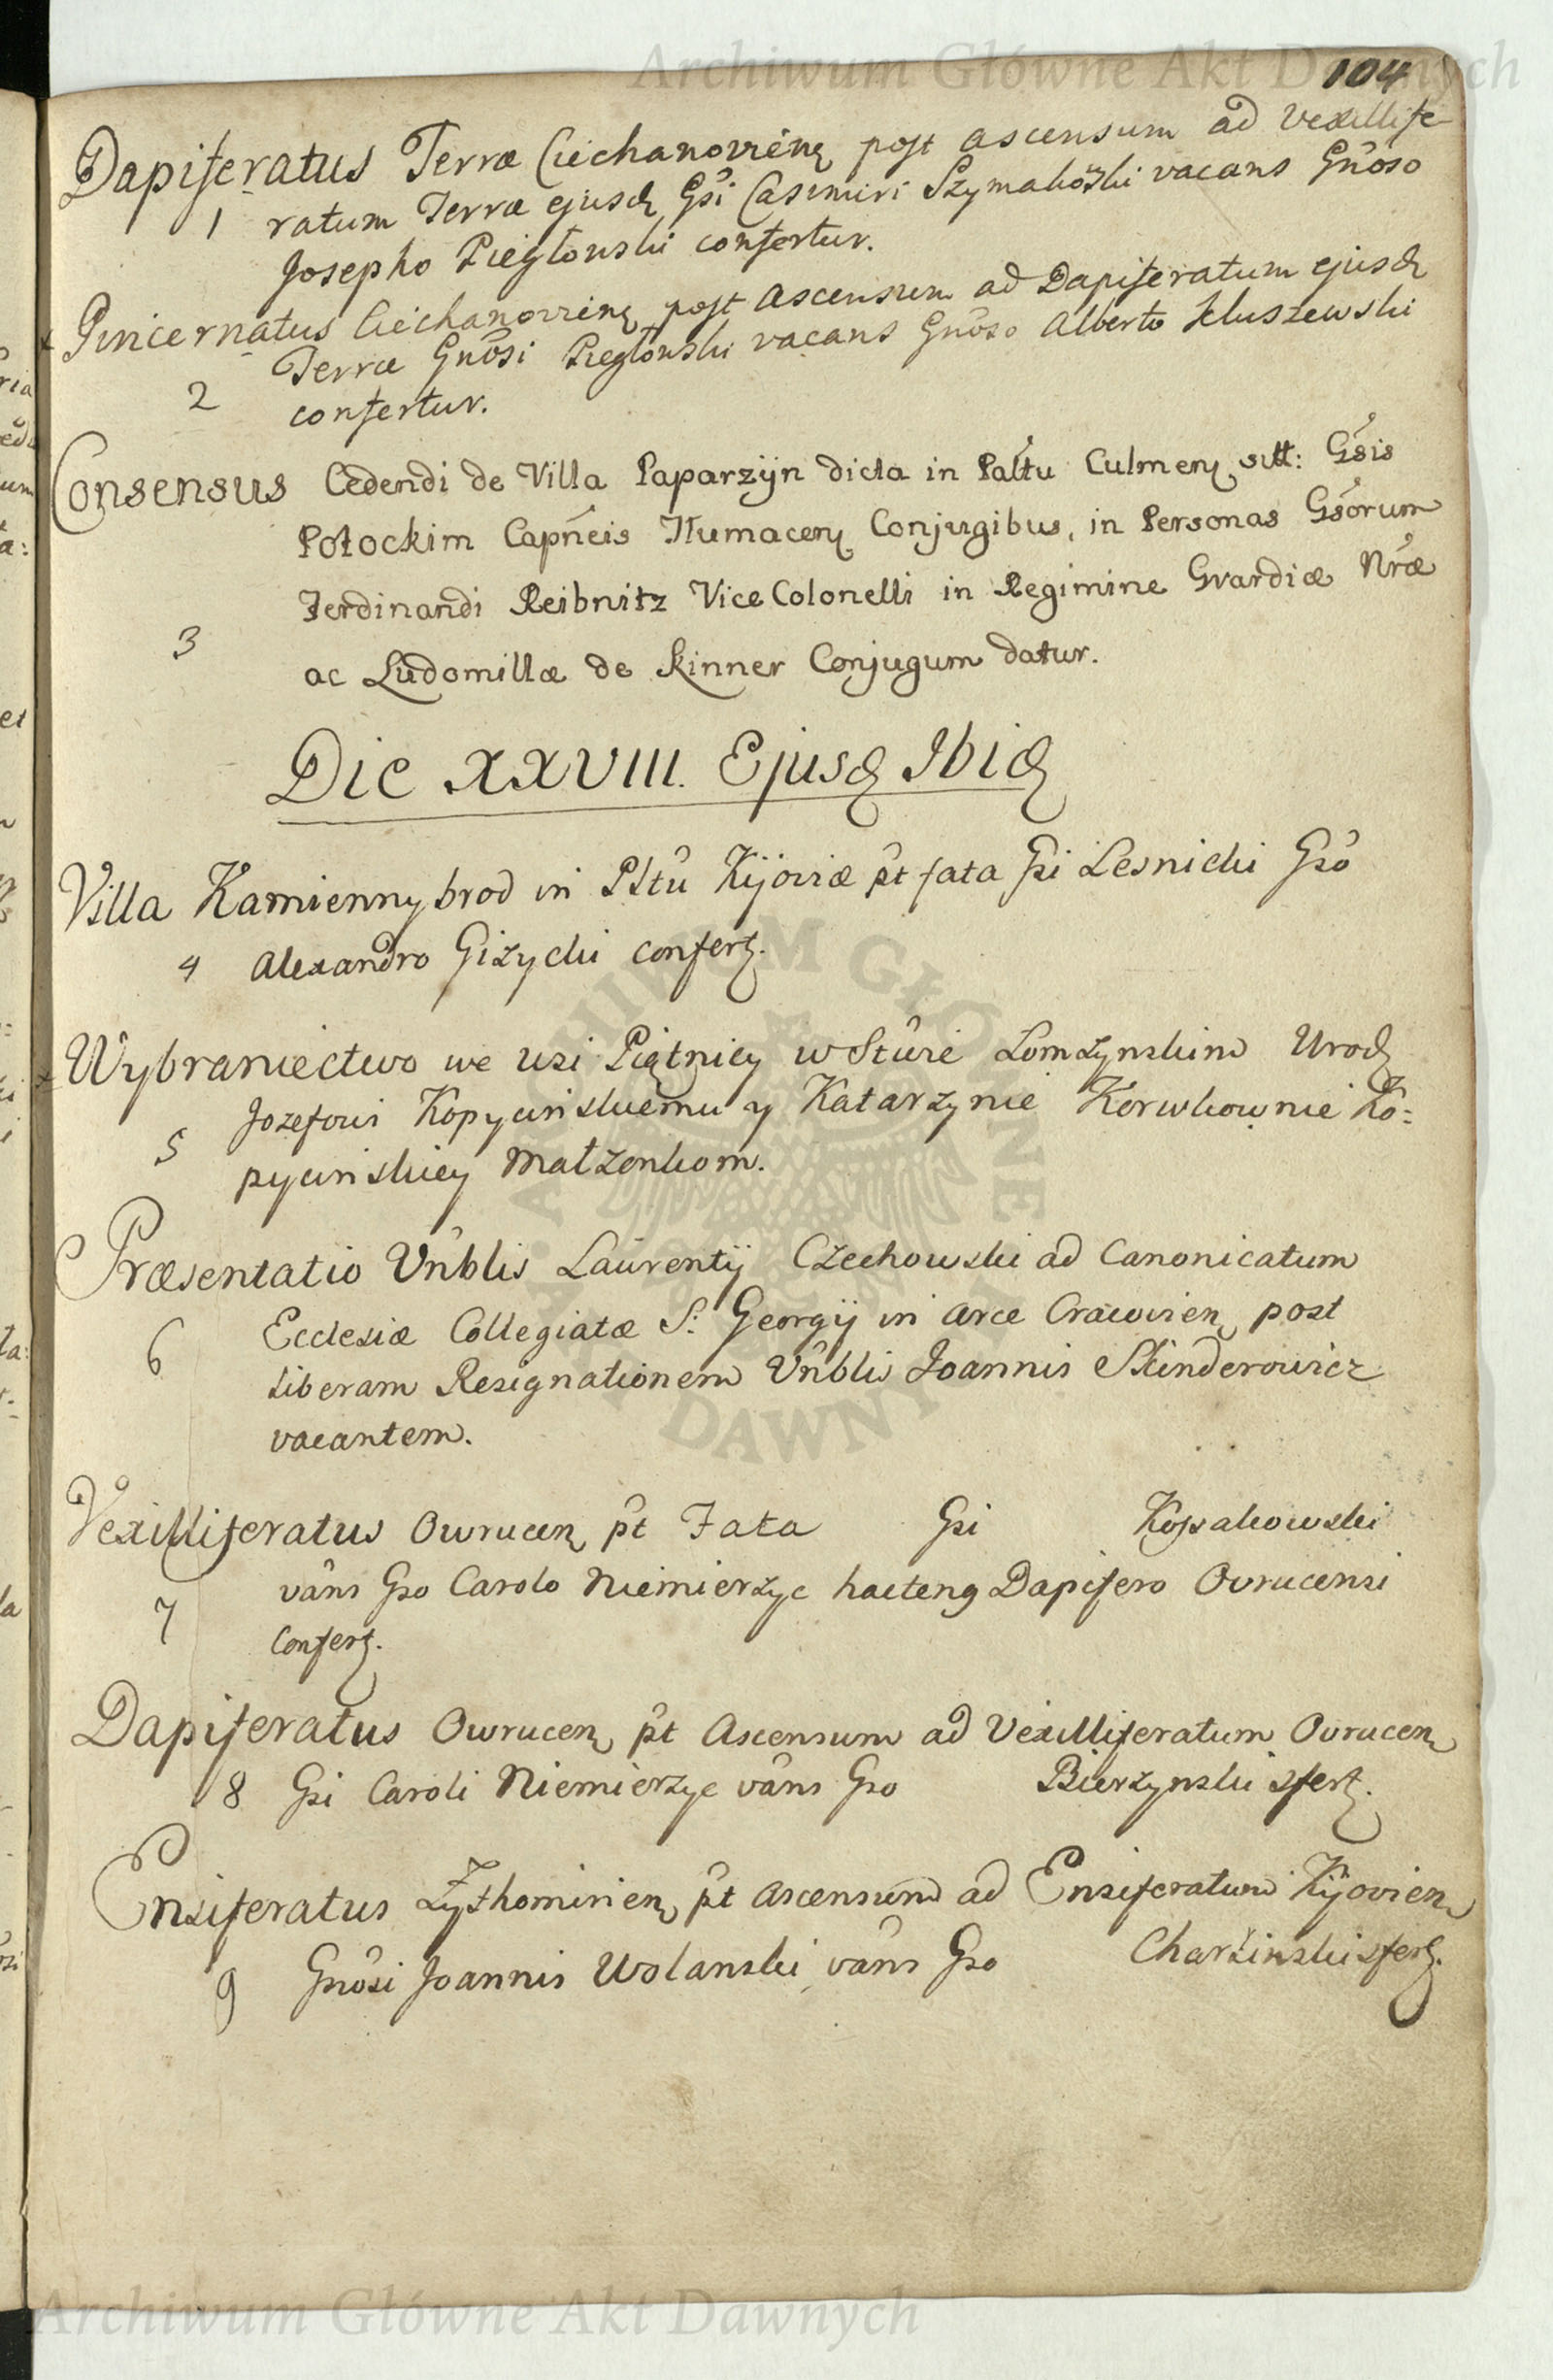 Archiwum Główne Akt Dawnych
104
Dapiferatus Terræ Ciechanovień post ascensum ad Vexillife
1 ratum Terræ ejusd Gsi Casimiri Szymakoski vacans Gnoso
Josepho Pieglowski confertur.
Pincernatus Ciechanovień post Ascensum ad Dapiferatum ejusd
Terræ Gnosi Pieglowski vacans Gnoso Alberto Kluszewski
2 confertur.
Consensus Cedendi de Villa Paparzÿn dicta in Palťu Culmeń sitt: Gsis
Potockim Capneis Tłumaceń Conjugibus, in Personas Gsorum
Ferdinandi Reibnitz Vice Colonelli in Regimine Gvardiæ Nræ
3 ac Ludomillæ de Skinner Conjugum datur.
Die XXVIII. Ejusd Ibid
Villa Kamiennybrod in Pltu Kijoviæ pt fata Gsi Lesnicki Gso
4 Alexandro Giżycki confert.
Wybraniectwo we wsi Piątnicy w Stwie Łomżynskim Urod
Jozefowi Kopycinskiemu y Katarzynie Korwkownie Ko=
5 pycinskiey Małżonkom.
Præsentatio Vnblis Laurentij Czechowski ad Canonicatum
6 Ecclesiæ Collegiatæ S: Georgij in Arce Cracovień post
liberam Resignationem Vnblis Joannis Skinderowicz
vacantem.
Vexilliferatus Owruceń pt Fata Gsi Kossakowski
7 vans Gso Carolo Niemierzyc hacteng Dapifero Ovrucensi
Confert.
Dapiferatus Owruceń pt Ascensum ad Vexilliferatum Ovruceń
8 Gsi Caroli Niemierzyc vans Gso Bierzynski sfert.
Ensiferatus Zythomirień pt ascensum ad Ensiferatum Kijovień
9 Gnosi Joannis Wolanski, vans Gso Charżinski sfert.
Archiwum Główne Akt Dawnych